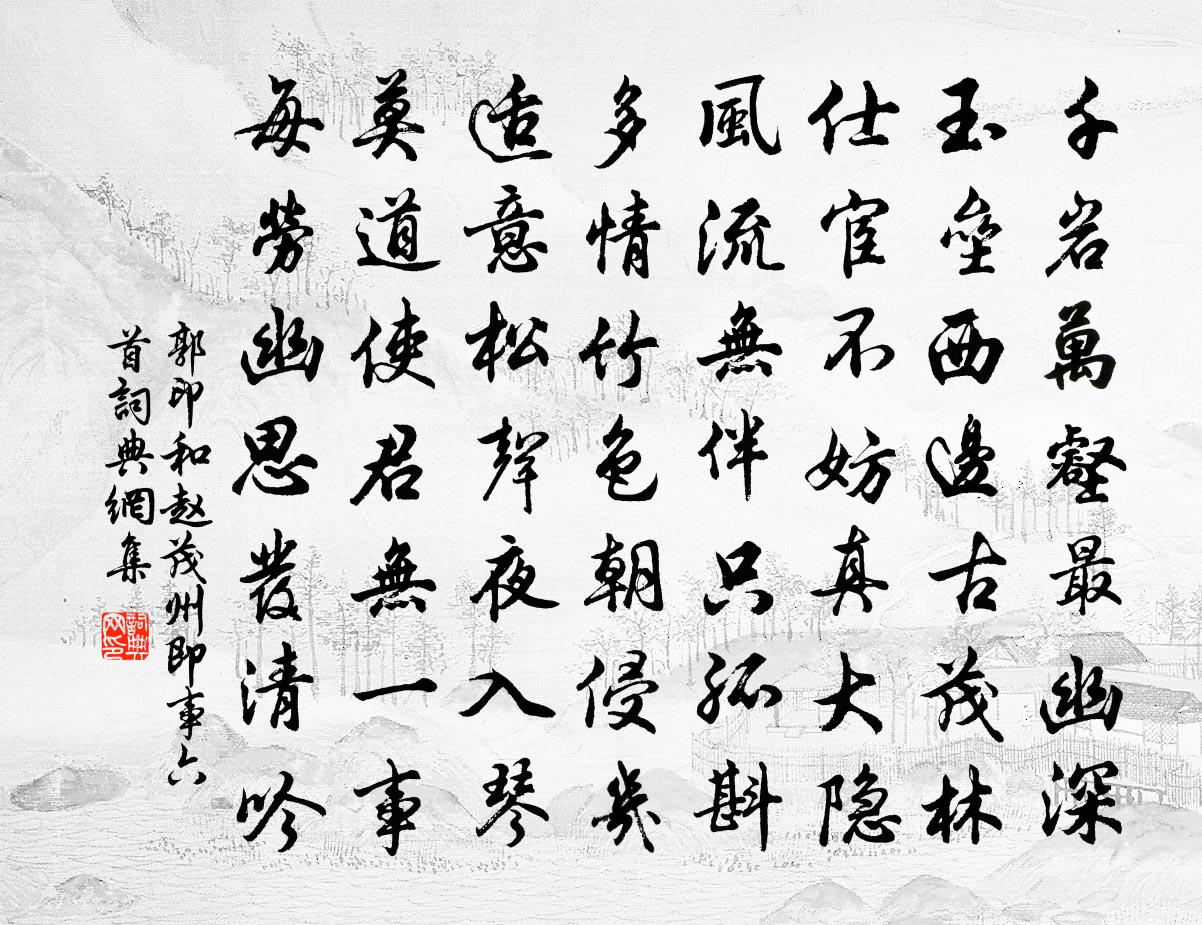 千岩萬壑最幽深
玉壘西邊古茂林
仕宦不妨真大隐
風流無伴只孤斟
多情竹色朝侵几
适意松聲夜入琴
莫道使君無一事
每勞幽思發清吟
郭印和赵茂州即事六
首詞典網集
詞典
网印